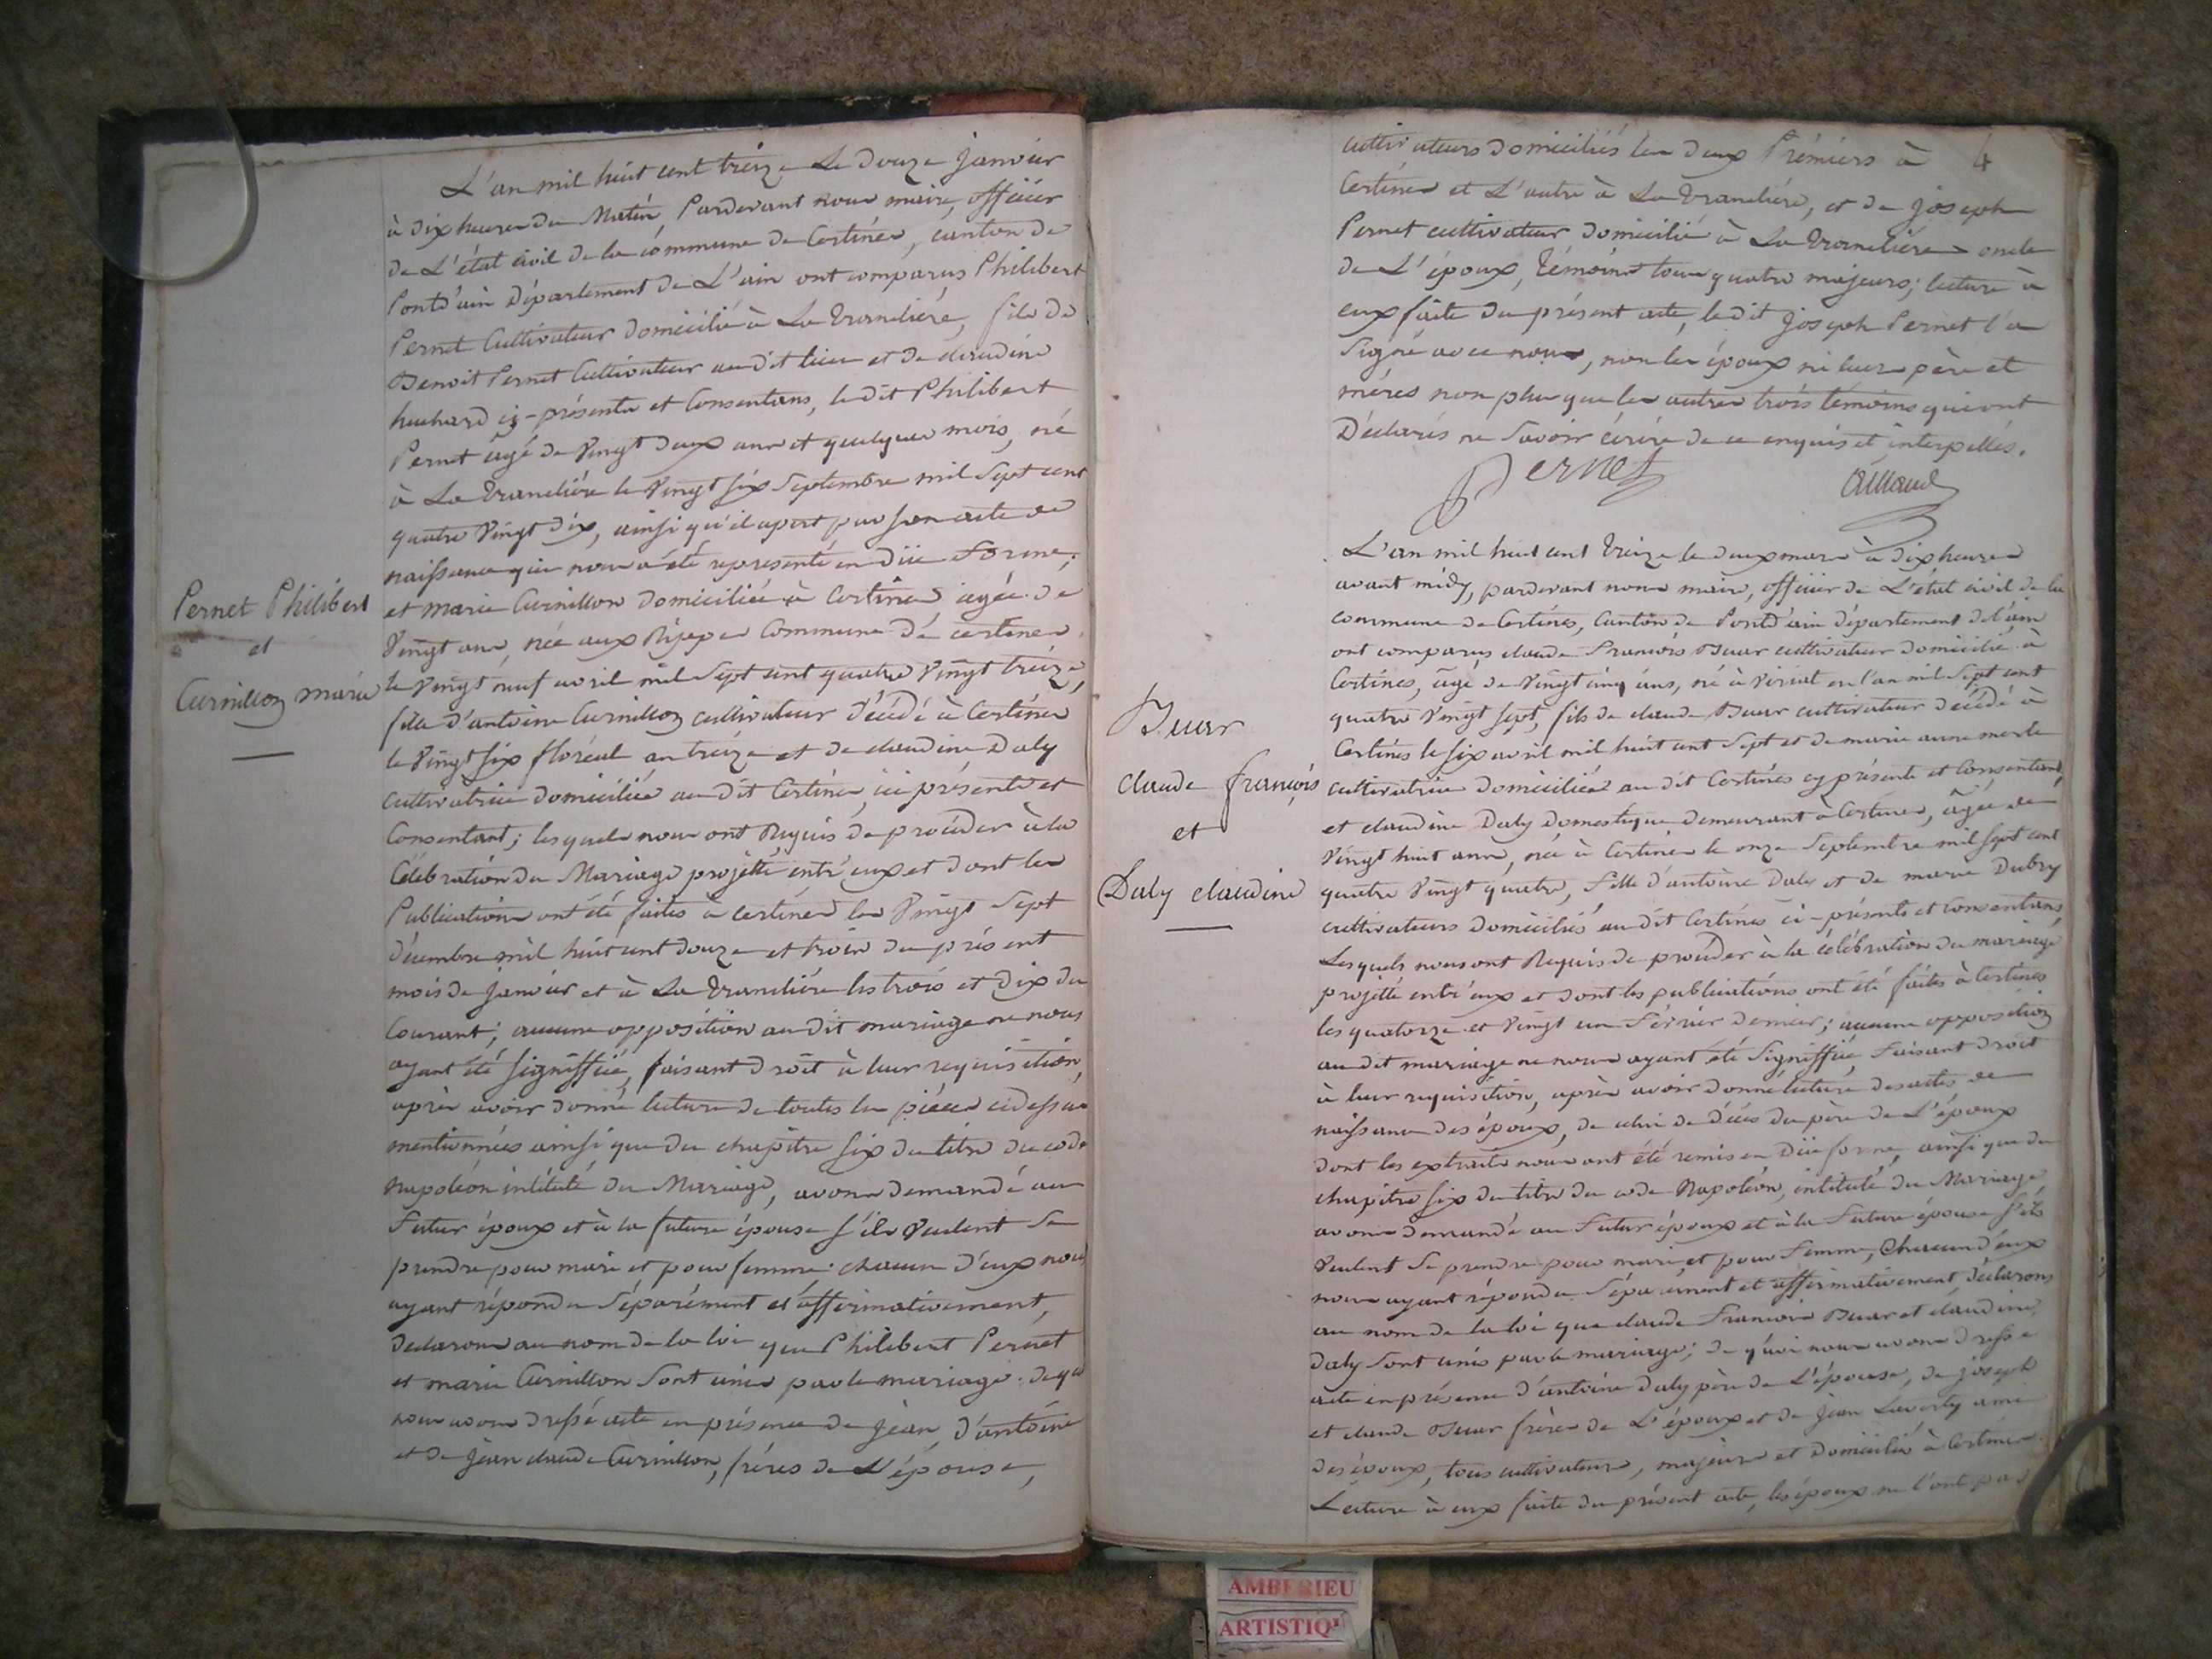 Pernet Philibert
et
Curnillon marie
L'an mil huit cent treize Le douze janvier
à dix heures du Matin, Pardevant nous maire, officier
de L'état civil de la commune de Certines, canton de
Pontd'ain département de L'ain ont comparus Philibert
Pernet Cultivateur domicilié à La tranclière, fils de
Benoit Pernet Cultivateur au dit lieu et de claudine
huchard présents et Consentans, le dit Philibert
Pernet âgé de Vingt deux ans et quelques mois, né
à La tranclière le Vingt six Septembre mil Sept cent
quatre Vingt dix, ainsi qu'il apert par son acte de
naissance qui nous a été representé en düe forme;
et marie Curnillon domiciliée à Certines âgée de
Vingt ans, née aux Rippes Commune de certines
le Vingt neuf avril mil Sept cent quatre Vingt treize,
fille d'antoine Curnillon cultivateur décédé à Certines
le Vingt six floréal an treize et de claudine Daly
cultivatrice domiciliée au dit Certines, ici présente et
Consentant; lesquels nous ont Requis de procéder à la
Célébration du Mariage projetté entr'eux et dont les
Publications ont été faites à certines les Vingt Sept
décembre mil huit cent douze et trois du présent
mois de janvier et à La tranclière les trois et dix du
Courant; aucune opposition au dit mariage ne nous
ayant été signiffiée, faisant droit à leur requisition,
après avoir donné lecture de toutes les pièces cidessus
mentionnées ainsi que du chapitre six du titre du code
Napoléon intitulé du Mariage, avons demandé au
Futur époux et à la future épouse s'ils Veulent Se
prendre pour mari et pour femme; chacun d'eux nous
ayant répondu Séparément et affirmativement,
declarons au nom de la loi que Philibert Pernet
et marie Curnillon Sont unis par le mariage. de quoi
nous avons dressé acte en présence de jean, d'antoine
et de jean claude Curnillon, frères de L'épouse,
4
cultivateurs domiciliés les deux Prémiers à
Certines et L'autre à La tranclière, et de joseph
Pernet cultivateur domicilié à La tranclière oncle
de L'époux, témoins tous quatre majeurs; lecture à
eux faite du présent acte, le dit joseph Pernet l'a
Signé avec nous, non les époux ni leurs père et
mères non plus que les autres trois témoins qui ont
Déclarés ne Savoir écrire de ce enquis et interpellés.
Pernet
Buar
claude françois
et
Daly claudine
L'an mil huit cent treize le deux mars à dix heures
avant midy, pardevant nous maire, officier de L'état civil de la
commune de Certines, Canton de Pontd'ain département de l'ain
ont comparus claude François Buar cultivateur domicilié à
Certines, âgé de Vingt cinq ans, né à Viriat en l'an mil Sept cent
quatre Vingt sept, fils de claude Buar cultivateur décédé à
Certines le six avril mil huit cent Sept et de marie anne
cultivatrice domiciliée au dit Certines cy présente et Consentant,
et claudine Daly Domestique demeurant à Certines, âgée de
Vingt huit ans, née à Certines le onze Septembre mil Sept cent
quatre Vingt quatre, fille d'antoine Daly et de marie Dubry
cultivateurs domiciliés au dit Certines ci-présents et consentans,
Lesquels nous ont Requis de procéder à la célébration du mariage
projetté entr'eux et dont les publications ont été faites à Certines
les quatorze et Vingt un Février dernier; aucune opposition
au dit mariage ne nous ayant été Signiffiée, faisant droit
à leur requisition, après avoir donné lecture des actes de
naissance des époux, de celui de décès du père de L'époux
dont les extraits nous ont été remis en düe forme, ainsi que du
chapitre six du titre du code Napoléon, intitulé du Mariage,
avons demandé au Futur époux et à la Future épouse s'ils
Veulent Se prendre pour mari et pour Femme, Chacun d'eux
nous ayant répondu Séparément et affirmativement, déclarons
au nom de la loi que claude François Buar et claudine
Daly Sont unis par le mariage; de quoi nous avons dressé
acte en présence d'antoine Daly père de L'épouse, de joseph
et claude Buar frères de L'époux et de jean ami
des époux, tous cultivateurs, majeurs et domiciliés à Certines.
Lecture à eux faite du présent acte, les époux ne l'ont pas
AMBERIEU
ARTISTIQ